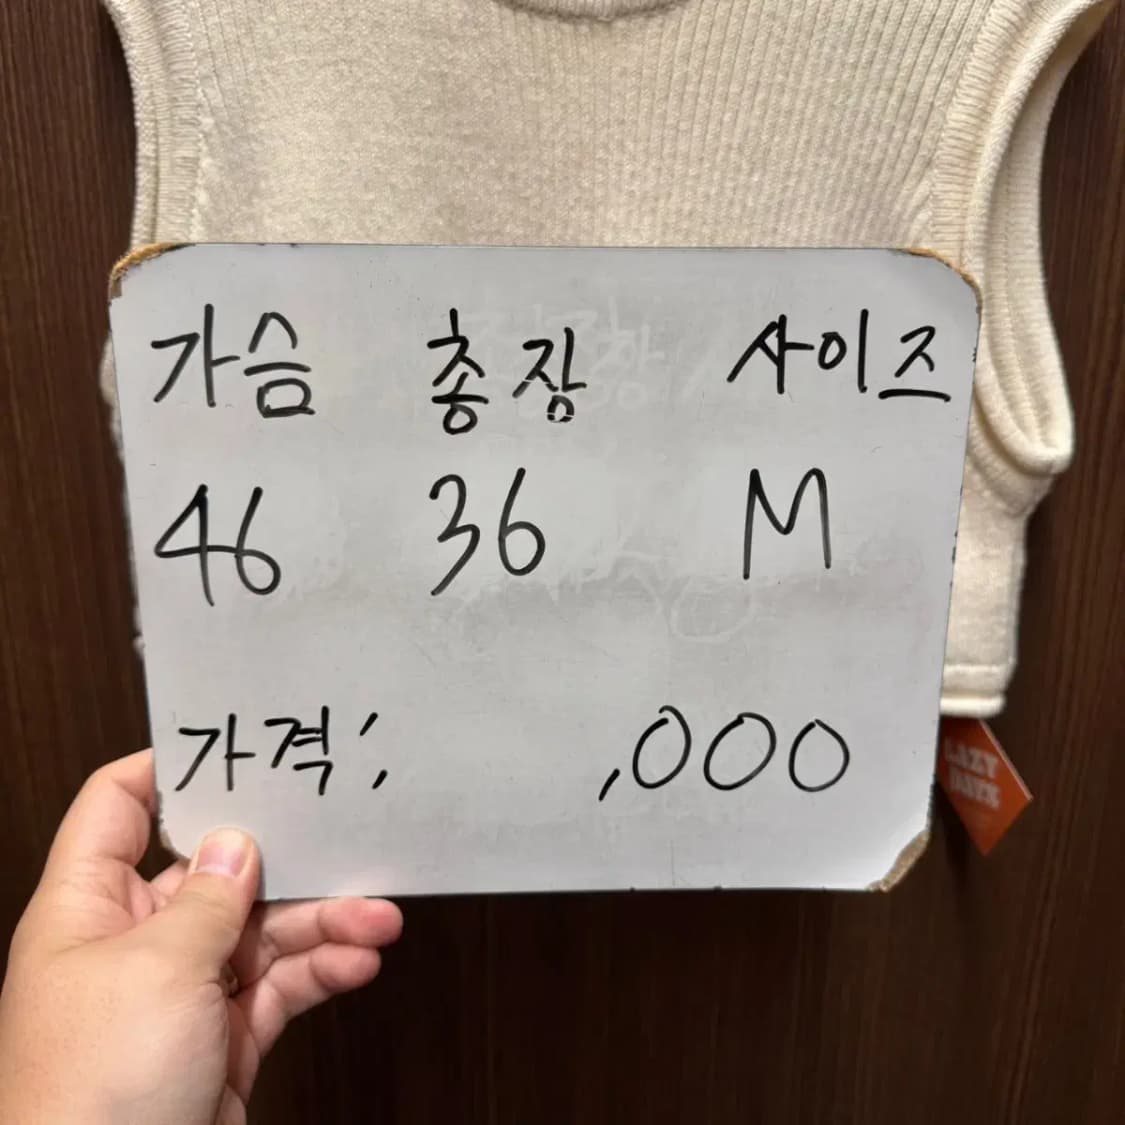 가슴 총장 사이즈
46 36 M
가격: ,000
LAZY
DAYZ